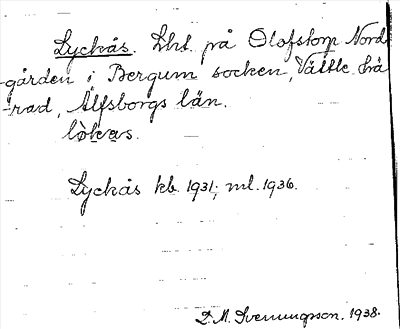 Lyckås. Lht. på Olofstorp Nord
-gården i Bergum socken, Vättle hä
-rad, Älfsborgs län.
lòkas.
Lyckås kb. 1931; ml. 1936.
D. M. Svenungsson. 1938.